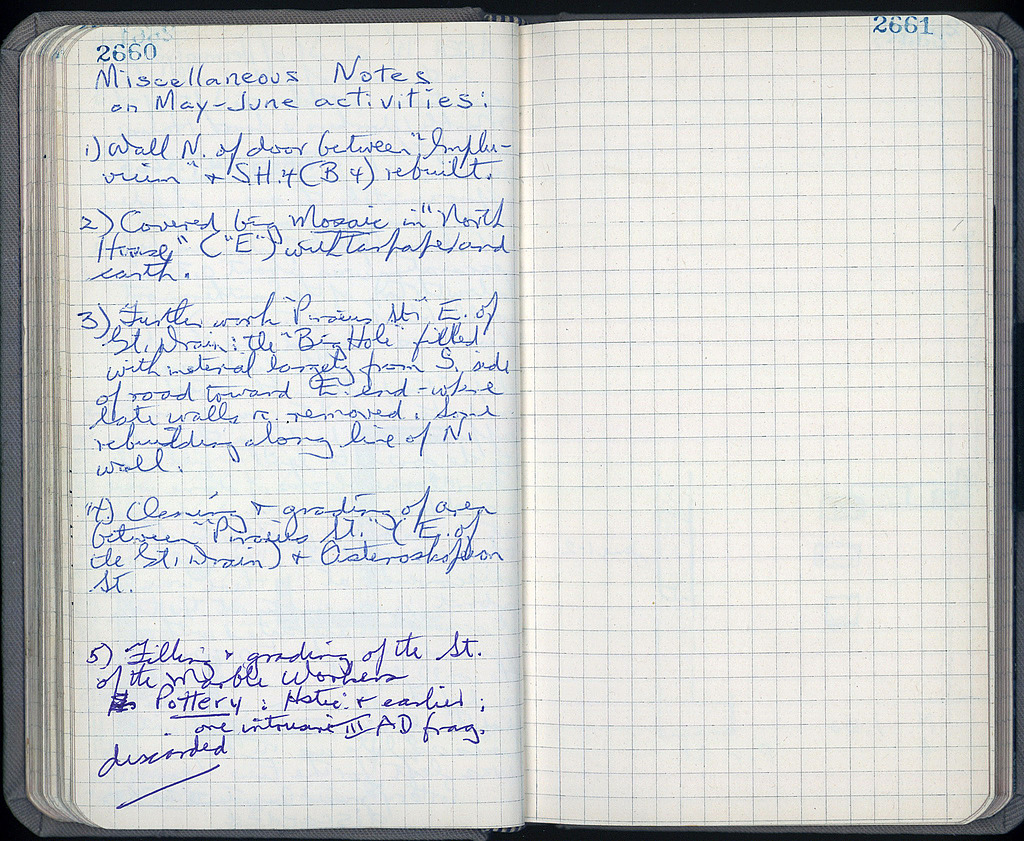 2660
Miscellaneous Notes
on May-June activities:
1) Wall N. of door between "Implu-
vium" + SH.4 (B 4) rebuilt.
2) Covered big Mosaic in "North
House" ("E") with tarpaper and
earth.
3) Further work "Piraeus St." E. of
St. Drain: the "Big Hole" filled
with material largely from S. side
of road toward E. end - where
late walls removed. Some
rebuilding along line of N.
wall.
4) Cleaning + grading of area
between "Piraeus St." (E. of
the St. Drain) + Asteroskopeion
St.
5) Filling + grading of the St.
of the Marble Workers
Pottery: Hstic + earlier;
one intrusive III AD frag.
discarded
2661